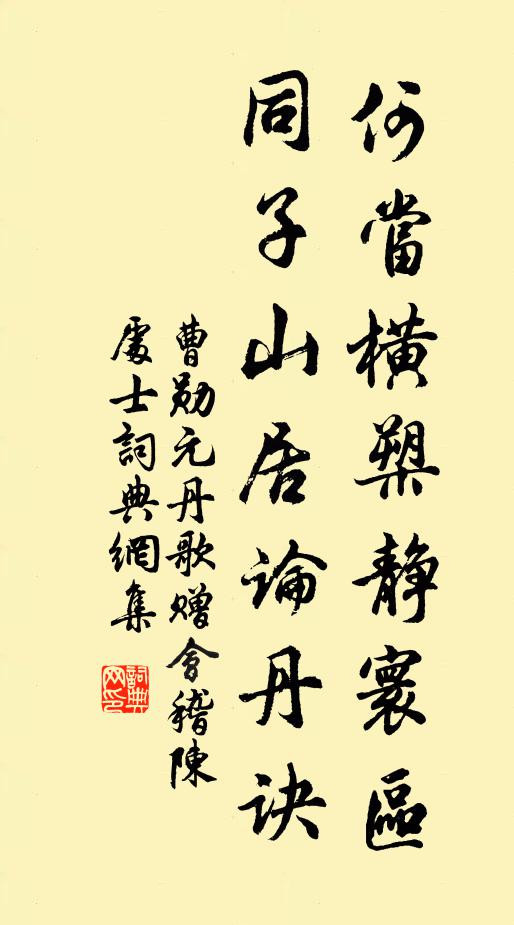 何當橫槊靜寰區
同子山居論丹诀
曹勋元丹歌赠會稽陳
處士詞典網集
詞典网印